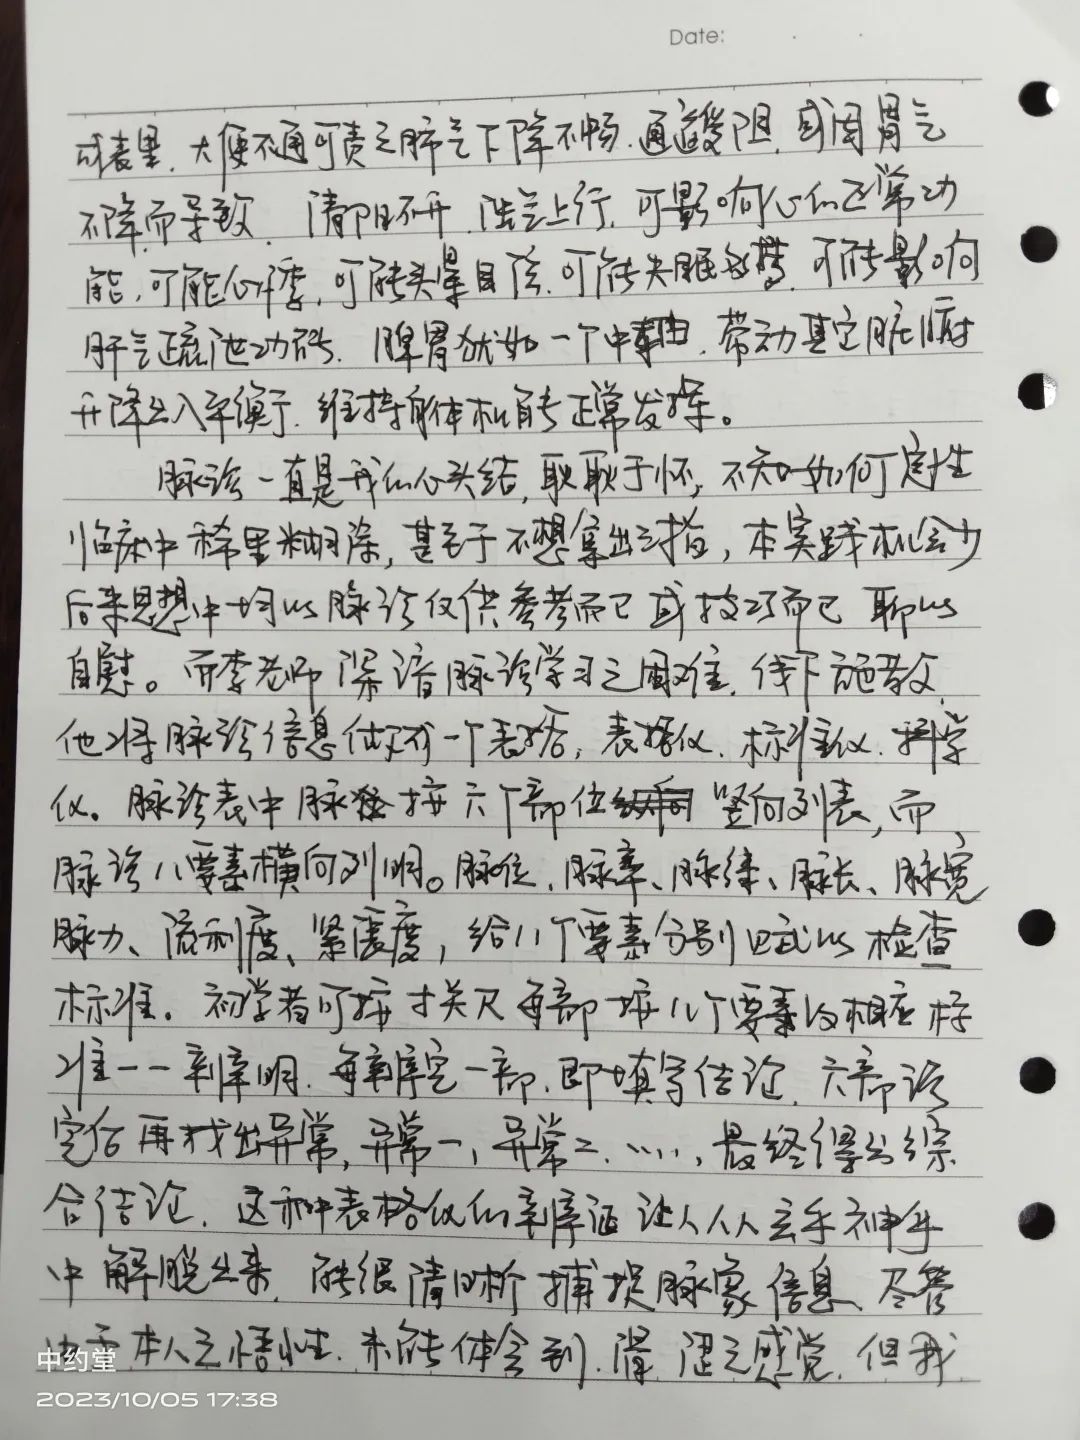 Date:
成表里，大便不通可责之肺气下降不畅，通道受阻，或因胃气
不降而导致，清阳不升，浊气上行，可影响心的正常功
能，可能心悸，可能头晕目眩，可能失眠多梦，可能影响
肝气疏泄功能，脾胃犹如一个中轴，带动其它脏腑
升降出入平衡，维持身体机能正常发挥。
脉诊一直是我的心头结，耿耿于怀，不知如何定性
临床中稀里糊涂，甚至于不想拿出三指，本实践机会少
后来思想中均以脉诊仅供参考而已或技巧而已聊以
自慰。而李老师深谙脉诊学习之困难，线下施教，
他将脉诊信息做为一个表格，表格化，标准化，科学
化。脉诊表中脉按六个部位竖向列表，而，
脉诊八要素横向列明。脉位、脉率、脉律、脉长、脉宽
脉力、流利度、紧张度，给八个要素分别赋以检查
标准。初学者可按寸关尺每部按八个要素的相应标
准一一辨明，每辨完一部，即填写结论，六部诊
完后再找出异常，异常一，异常二，……，最终得出综
合结论，这种表格化的辨证让人从玄乎神乎
中解脱出来，能很清晰捕捉脉象信息，尽管
本人之悟性，未能体会到滑、涩之感觉，但我
中约堂
2023/10/05 17:38